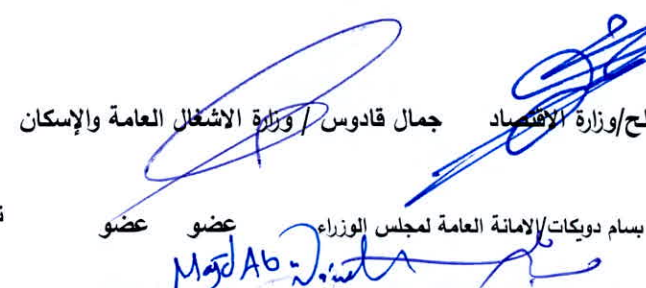 لح/وزارة الاقتصاد جمال قادوس / وزارة الاشغال العامة والإسكان
بسام دويكات/الامانة العامة لمجلس الوزراء عضو عضو
Majd Ab